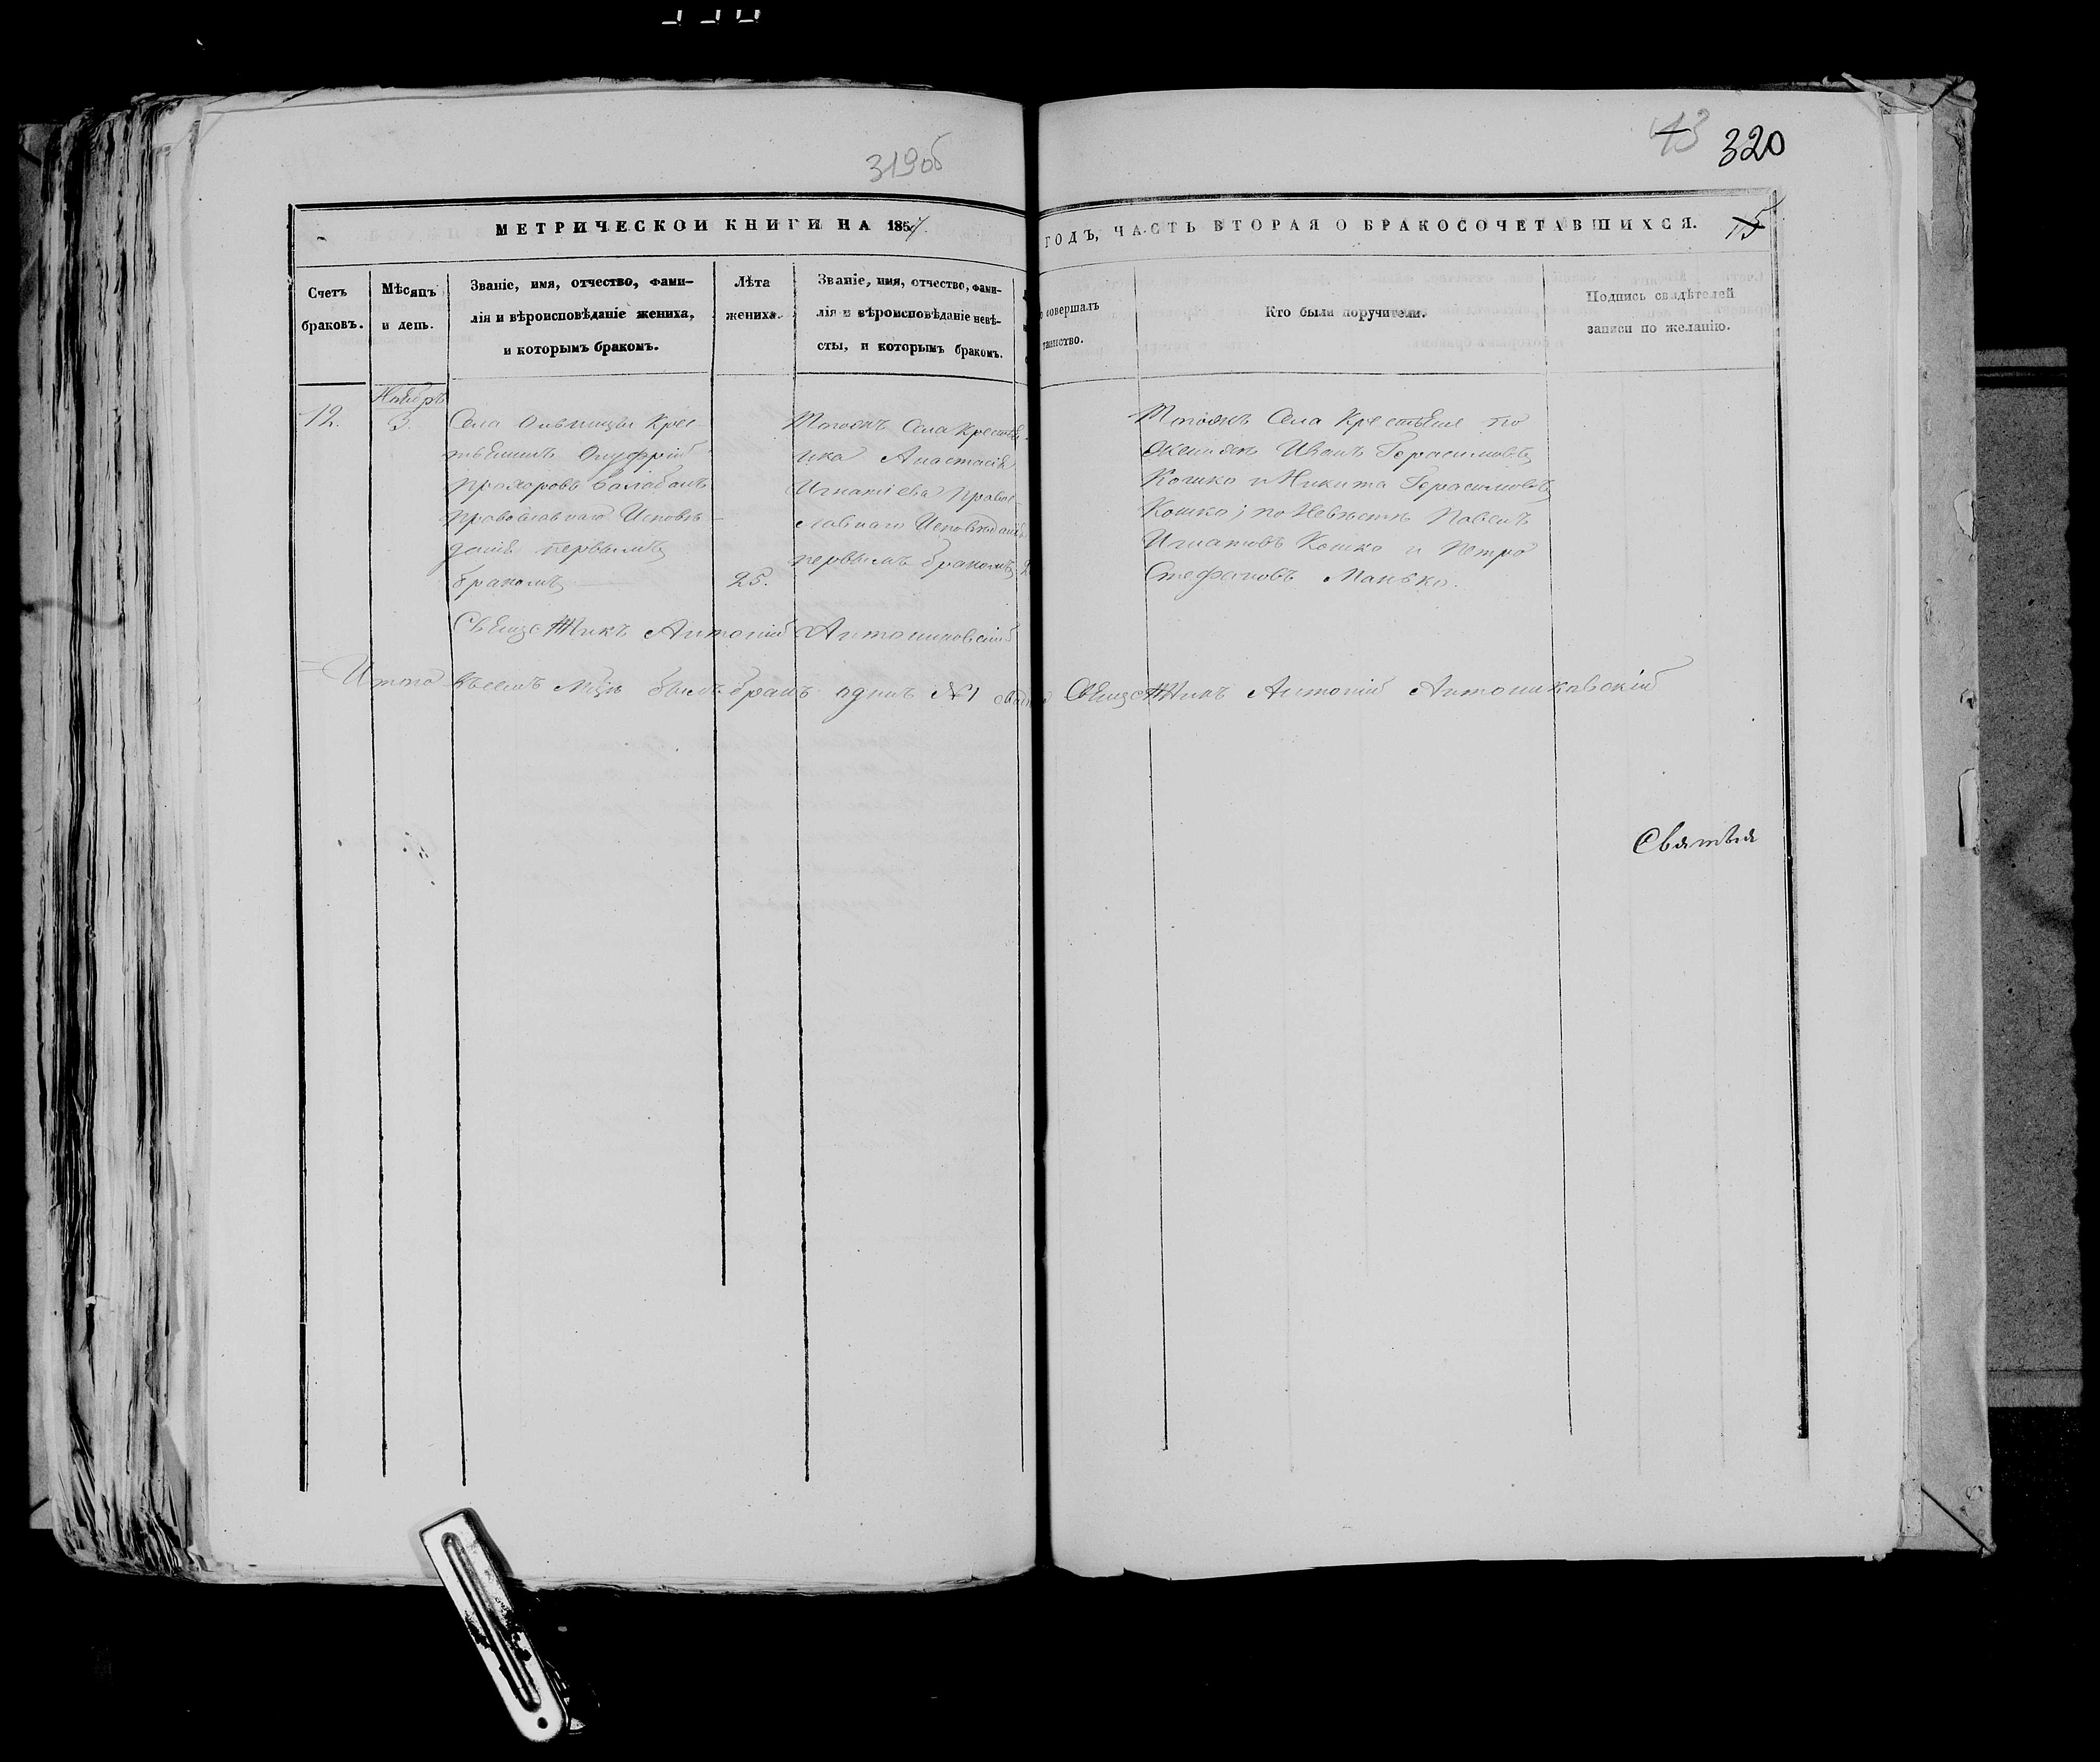 319об
320
МЕТРИЧЕСКОЙ КНИГИ НА 1857
ГОДЪ, ЧАСТЬ ВТОРАЯ О БРАКОСОЧЕТАВШИХСЯ.
Счетъ браковъ.
Мѣсяцъ и день.
Званіе, имя, отчество, фами-
лія и вѣроисповѣданіе жениха,
и которымъ бракомъ.
Лѣта
жениха.
Званіе, имя, отчество, фами-
лія и вѣроисповѣданіе невѣ-
сты, и которымъ бракомъ.
совершалъ
таинство.
Кто были поручители.
Подпись свидѣтелей
записи по желанію.
Ноябрь
12.
3.
Села Ольпицы Крес-
тьянинъ Онуфрій
Прохоровъ Балабанъ
Православнаго Исповѣ-
данія первымъ
бракомъ
25.
Тогожъ Села Крестьян-
ка Анастасія
Игнатіева Право-
славнаго Исповѣданія
первымъ бракомъ
Тогожъ Села Крестьяне по
Женихѣ Иванъ Герасимовъ
Кошко и Никита Герасимовъ
Кошко; по Невѣстѣ Павелъ
Игнатовъ Кошко и Петро
Стефановъ Манько.
Священникъ Антоній Антошковскій
Итого въ семъ мцѣ былъ бракъ одинъ №1
Священникъ Антоній Антошковскій